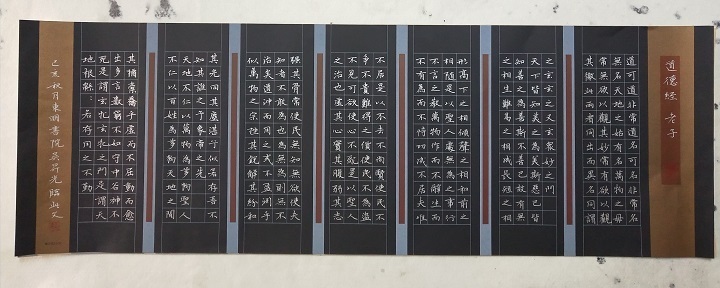 道德經 老子
道可道非常道名可名非常名
無名天地之始有名萬物之母
常無欲以觀其妙常有欲以觀
其徼此兩者同出而異名同謂
之玄玄之又玄眾妙之門
天下皆知美之為美斯惡已皆
知善之為善斯不善已故有無
之相生難易之相成長短之相
形高下之相傾聲之相和前之
相隨是以聖人處無為之事行
不言之教萬物作而不辭生而
不有為而不恃功成不居夫唯
不居是以不去不尚賢使民不
爭不貴難得之貨使民不為盜
不見可欲使心不亂是以聖人
之治也虛其心實其腹弱其志
強其骨常使民無知無欲使夫
知者不敢為也為無為則無不
治矣道沖而用之或不盈淵乎
似萬物之宗挫其銳解其紛和
其光同其塵湛兮似若存吾不
知其誰之子象帝之先
天地不仁以萬物為芻狗聖人
不仁以百姓為芻狗天地之間
其猶橐籥乎虛而不屈動而愈
出多言數窮不如守中谷神不
死是謂玄牝玄牝之門是謂天
地根緜：若存用之不勤
己亥秋月東明書院吳昇光臨此文